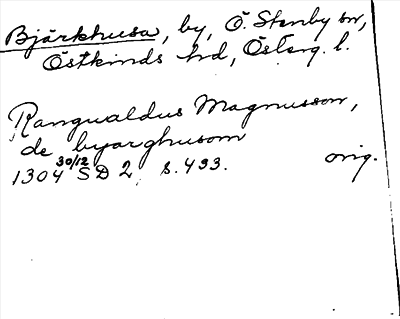 Bjärkhusa, by, Ö. Stenby sn,
Östkinds hd, Österg. l.
Rangualdus Magnusson,
de byarghusom
1304 30/12 SD 2, s. 433. orig.